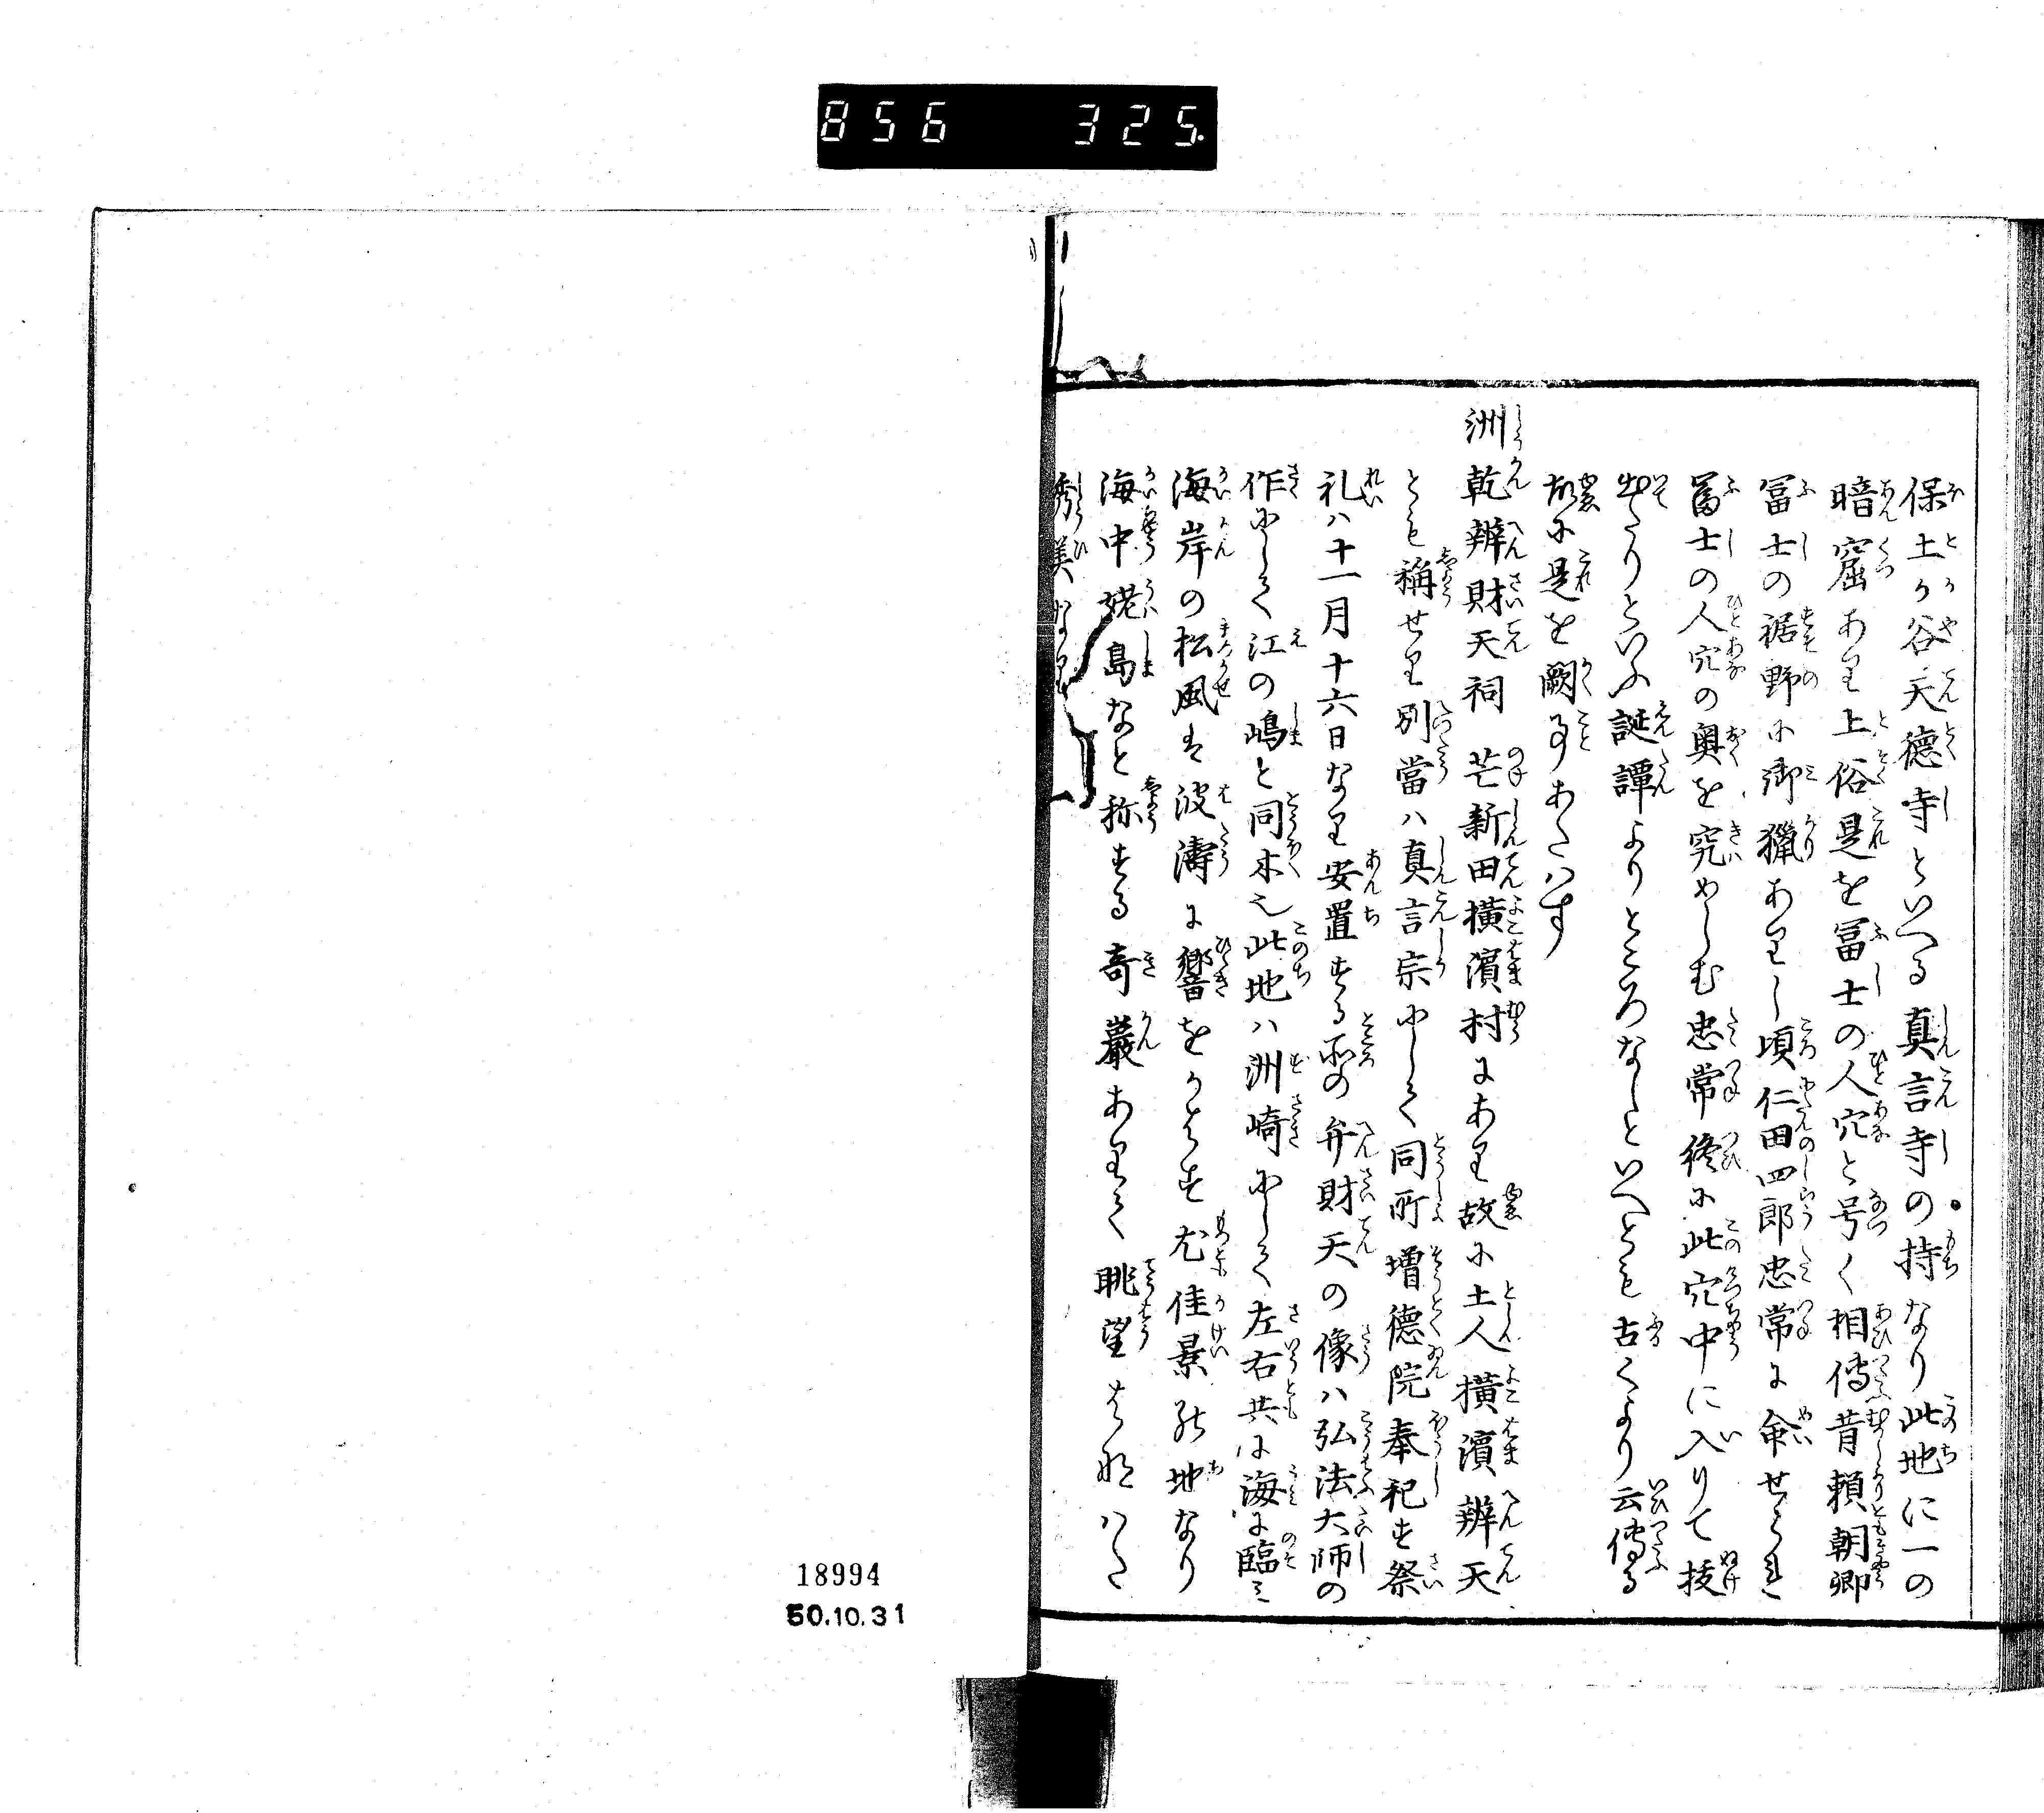 856 325
保土ケ谷天徳寺といへる真言寺の持なり此地に一の
暗窟あり土俗是を冨士の人穴と号く相傳昔頼朝卿
冨士の裾野に御獵ありし頃仁田四郎忠常に命せられ
冨士の人穴の奥を究めしむ忠常終に此穴中に入りて拔
出たりといふ誕譚よりところなしといへとも古くより云傳る
故に是を闕事あたハす
洲乾辨財天祠 芒新田横濱村にあり故に土人横濱辨天
とも稱せり別當ハ真言宗にして同所増德院奉祀す祭
礼ハ十一月十六日なり安置する所の弁財天の像ハ弘法大師の
作にして江の嶋と同木也此地ハ洲崎にして左右共に海に臨ミ
海岸の松風は波濤に響をかはす尤佳景の地なり
海中姥島なと称する奇巖ありて眺望はなハた
秀美なり
18994
50.10.31